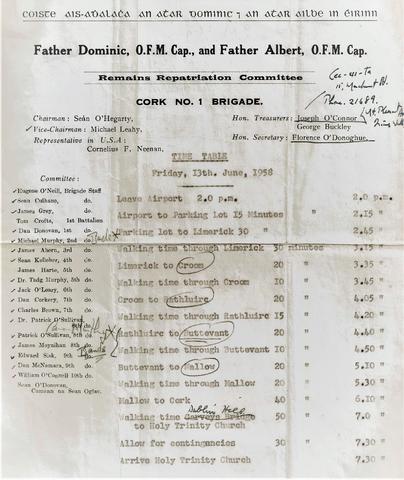 COISTE AIS-AḊALACṪA AN ATAR DOMINIC ⁊ AN ATAR AILBE IN ÉIRINN
Father Dominic, O.F.M. Cap., and Father Albert, O.F.M. Cap.
Remains Repatriation Committee
CORK NO. 1 BRIGADE.
Phone. 21689.
Chairman : Seán O'Hegarty,
Vice-Chairman : Michael Leahy,
Representative in U.S.A :
Cornelius F. Neenan,
Hon. Treasurers : Joseph O'Connor
George Buckley
Hon. Secretary : Florence O'Donoghue
TIME TABLE
Friday, 13th. June, 1958
Committee :
Eugene O'Neill, Brigade Staff
Sean Culhane, do.
James Grey, do.
Tom Crofts, 1st Battalion
Dan Donovan, 1st do.
Michael Murphy, 2nd do.
James Ahern, 3rd do.
Sean Kelleher, 4th do.
James Harte, 5th do.
Dr. Tadg Murphy, 5th do.
Jack O'Leary, 6th do.
Dan Corkery, 7th do.
Charles Brown, 7th do.
Dr. Patrick O'Sullivan,
Patrick O'Sullivan, 8th do.
James Moynihan 8th do.
Edward Sisk, 9th do.
Dan McNamara, 9th do.
William O'Connell 10th do.
Sean O'Donovan,
Cumann na Sean Oglac.
Leave Airport 2.0 p.m. 2.0 p.m.
Airport to Parking Lot 15 Minutes 2.15 "
Parking lot to Limerick 30 " 2.45 "
Walking time through Limerick 30 minutes 3.15 "
Limerick to Croom 20 " 3.35 "
Walking time through Croom 10 " 3.45 "
Croom to Rathluirc 20 " 4.05 "
Walking time through Rathluirc 15 " 4.20 "
Rathluirc to Buttevant 20 " 4.40 "
Walking time through Buttevant 10 " 4.50 "
Buttevant to Mallow 20 " 5.10 "
Walking time through Mallow 20 " 5.30 "
Mallow to Cork 40 " 6.10 "
Dublin Hill
Walking time Garveys Bridge 50 " 7.0 "
to Holy Trinity Church
Allow for contingencies 30 " 7.30 "
Arrive Holy Trinity Church 7.30 "